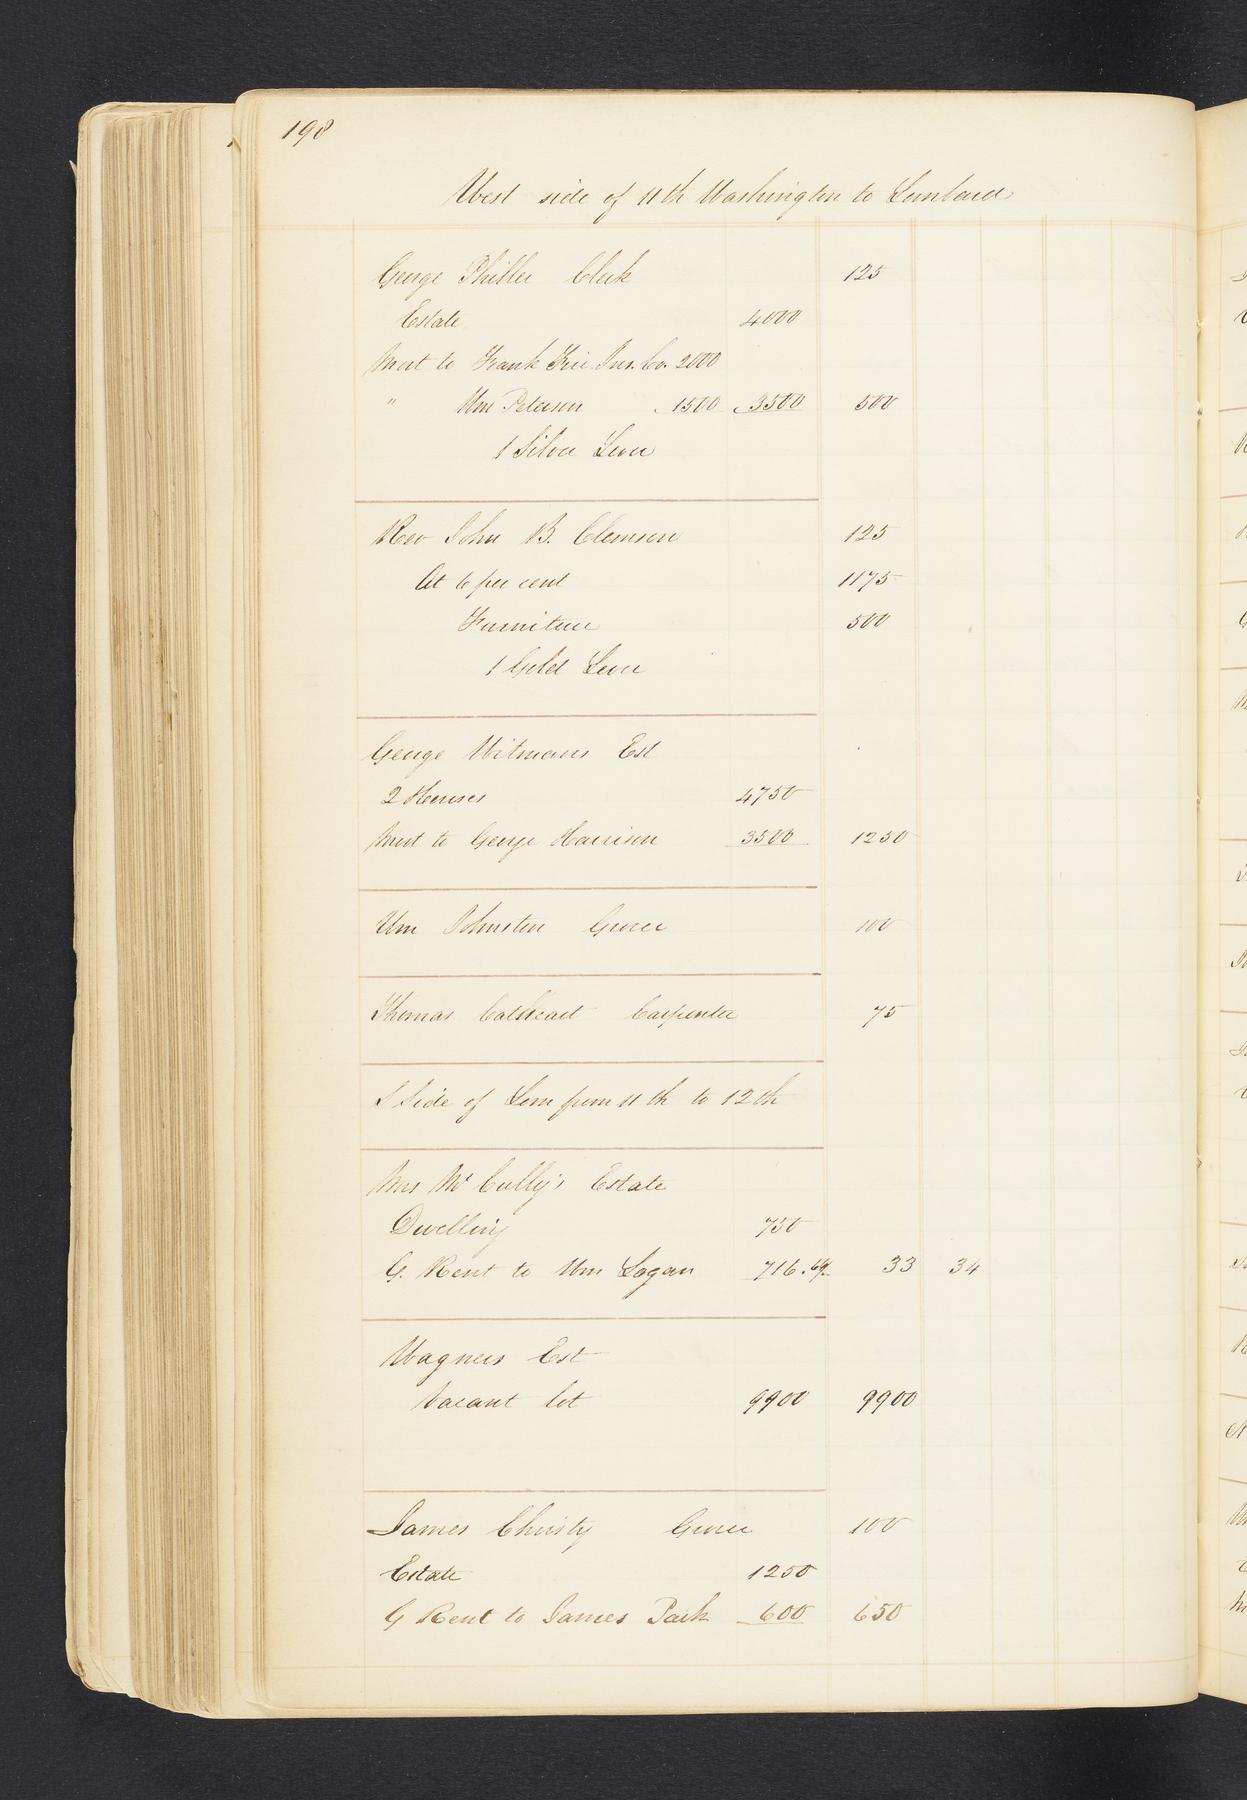 198
West side of 11th Washington to Lombard
George Philler Clerk 125
Estate 4000
Mort to Frank Fire Ins. Co. 2000
" Wm Peterson 1500 3500 500
1 Silver Lever
Rev John B. Clemson 125
At 6 per cent 1175
Furniture 500
1 Gold Lever
George Witmans Est
2 Houses 4750
Mort to George Harrison 3500 1250
Wm Johnston Grocer 100
Thomas Cathcart Carpenter 75
S Side of Lom from 11th to 12th
Mrs Mc Cully's Estate
Dwelling 750
G. Rent to Wm Logan 716.69 33 34
Wagners Est
Vacant lot 9900 9900
James Christy Grocer 100
Estate 1250
G Rent to James Park 600 650